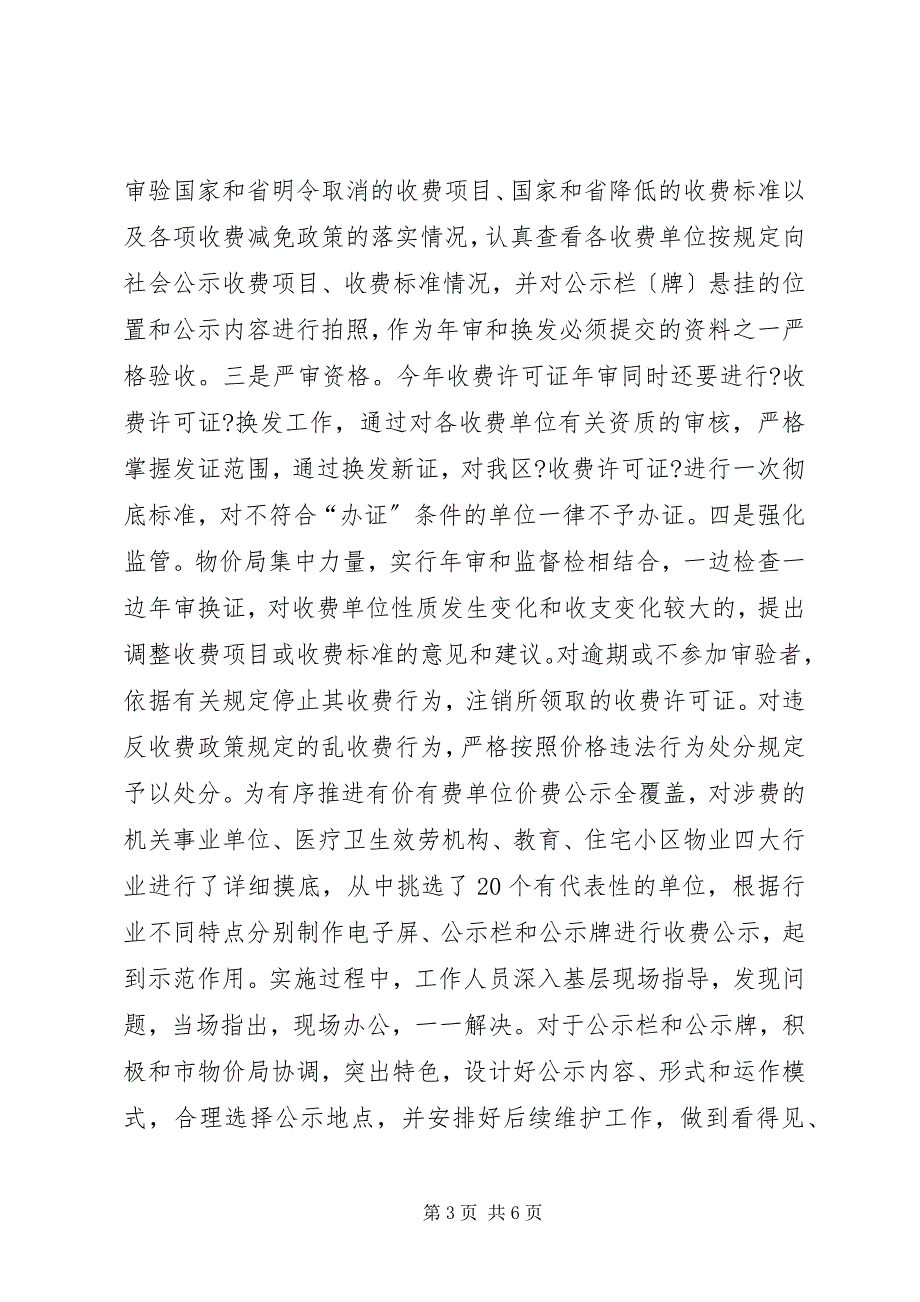 审验国家和省明令取消的收费项目、国家和省降低的收费标准以
及各项收费减免政策的落实情况，认真查看各收费单位按规定向
社会公示收费项目、收费标准情况，并对公示栏〔牌〕悬挂的位
置和公示内容进行拍照，作为年审和换发必须提交的资料之一严
格验收。三是严审资格。今年收费许可证年审同时还要进行?收
费许可证?换发工作，通过对各收费单位有关资质的审核，严格
掌握发证范围，通过换发新证，对我区?收费许可证?进行一次彻
底标准，对不符合“办证〞条件的单位一律不予办证。四是强化
监管。物价局集中力量，实行年审和监督检相结合，一边检查一
边年审换证，对收费单位性质发生变化和收支变化较大的，提出
调整收费项目或收费标准的意见和建议。对逾期或不参加审验者，
依据有关规定停止其收费行为，注销所领取的收费许可证。对违
反收费政策规定的乱收费行为，严格按照价格违法行为处分规定
予以处分。为有序推进有价有费单位价费公示全覆盖，对涉费的
机关事业单位、医疗卫生效劳机构、教育、住宅小区物业四大行
业进行了详细摸底，从中挑选了 20 个有代表性的单位，根据行
业不同特点分别制作电子屏、公示栏和公示牌进行收费公示，起
到示范作用。实施过程中，工作人员深入基层现场指导，发现问
题，当场指出，现场办公，一一解决。对于公示栏和公示牌，积
极和市物价局协调，突出特色，设计好公示内容、形式和运作模
式，合理选择公示地点，并安排好后续维护工作，做到看得见、
第 3 页 共 6 页